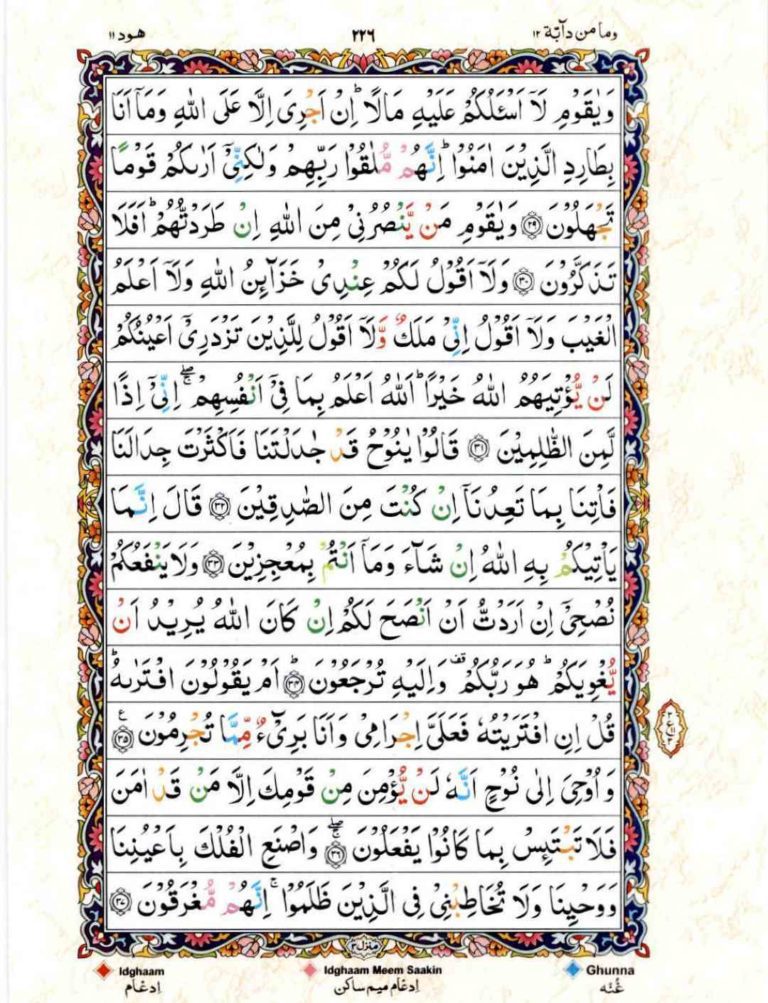 وما من دآبّة ١٢ ٢٢٦ هود ١١
وَيٰقَوْمِ لَاۤ اَسْـَٔلُكُمْ عَلَيْهِ مَالًا ؕ اِنْ اَجْرِىَ اِلَّا عَلَى اللّٰهِ وَمَاۤ اَنَا
بِطَارِدِ الَّذِيْنَ اٰمَنُوْا ؕ اِنَّهُمْ مُّلٰقُوْا رَبِّهِمْ وَلٰكِنِّىْۤ اَرٰىكُمْ قَوْمًا
تَجْهَلُوْنَ ﴿۲۹﴾ وَيٰقَوْمِ مَنْ يَّنْصُرُنِىْ مِنَ اللّٰهِ اِنْ طَرَدْتُّهُمْ ؕ اَفَلَا
تَذَكَّرُوْنَ ﴿۳۰﴾ وَلَاۤ اَقُوْلُ لَكُمْ عِنْدِىْ خَزَآئِنُ اللّٰهِ وَلَاۤ اَعْلَمُ
الْغَيْبَ وَلَاۤ اَقُوْلُ اِنِّىْ مَلَكٌ وَّلَاۤ اَقُوْلُ لِلَّذِيْنَ تَزْدَرِىْۤ اَعْيُنُكُمْ
لَنْ يُّؤْتِيَهُمُ اللّٰهُ خَيْرًا ؕ اَللّٰهُ اَعْلَمُ بِمَا فِىْۤ اَنْفُسِهِمْ ۖۚ اِنِّىْۤ اِذًا
لَّمِنَ الظّٰلِمِيْنَ ﴿۳۱﴾ قَالُوْا يٰنُوْحُ قَدْ جٰدَلْتَنَا فَاَكْثَرْتَ جِدَالَنَا
فَاْتِنَا بِمَا تَعِدُنَاۤ اِنْ كُنْتَ مِنَ الصّٰدِقِيْنَ ﴿۳۲﴾ قَالَ اِنَّمَا
يَاْتِيْكُمْ بِهِ اللّٰهُ اِنْ شَآءَ وَمَاۤ اَنْتُمْ بِمُعْجِزِيْنَ ﴿۳۳﴾ وَلَا يَنْفَعُكُمْ
نُصْحِىْۤ اِنْ اَرَدْتُّ اَنْ اَنْصَحَ لَكُمْ اِنْ كَانَ اللّٰهُ يُرِيْدُ اَنْ
يُّغْوِيَكُمْ ؕ هُوَ رَبُّكُمْ ۫ وَاِلَيْهِ تُرْجَعُوْنَ ؕ﴿۳۴﴾ اَمْ يَقُوْلُوْنَ افْتَرٰٮهُ ؕ
قُلْ اِنِ افْتَرَيْتُهٗ فَعَلَىَّ اِجْرَامِىْ وَاَنَا بَرِىْٓءٌ مِّمَّا تُجْرِمُوْنَ ﴿۳۵﴾ ع
وَاُوْحِىَ اِلٰى نُوْحٍ اَنَّهٗ لَنْ يُّؤْمِنَ مِنْ قَوْمِكَ اِلَّا مَنْ قَدْ اٰمَنَ
فَلَا تَبْتَئِسْ بِمَا كَانُوْا يَفْعَلُوْنَ ۖۚ﴿۳۶﴾ وَاصْنَعِ الْفُلْكَ بِاَعْيُنِنَا
وَوَحْيِنَا وَلَا تُخَاطِبْنِىْ فِى الَّذِيْنَ ظَلَمُوْا ۚ اِنَّهُمْ مُّغْرَقُوْنَ ﴿۳۷﴾
منزل ٣
Idghaam Idghaam Meem Saakin Ghunna
اِدغَام اِدغَام مِيم سَاكن غُنّه